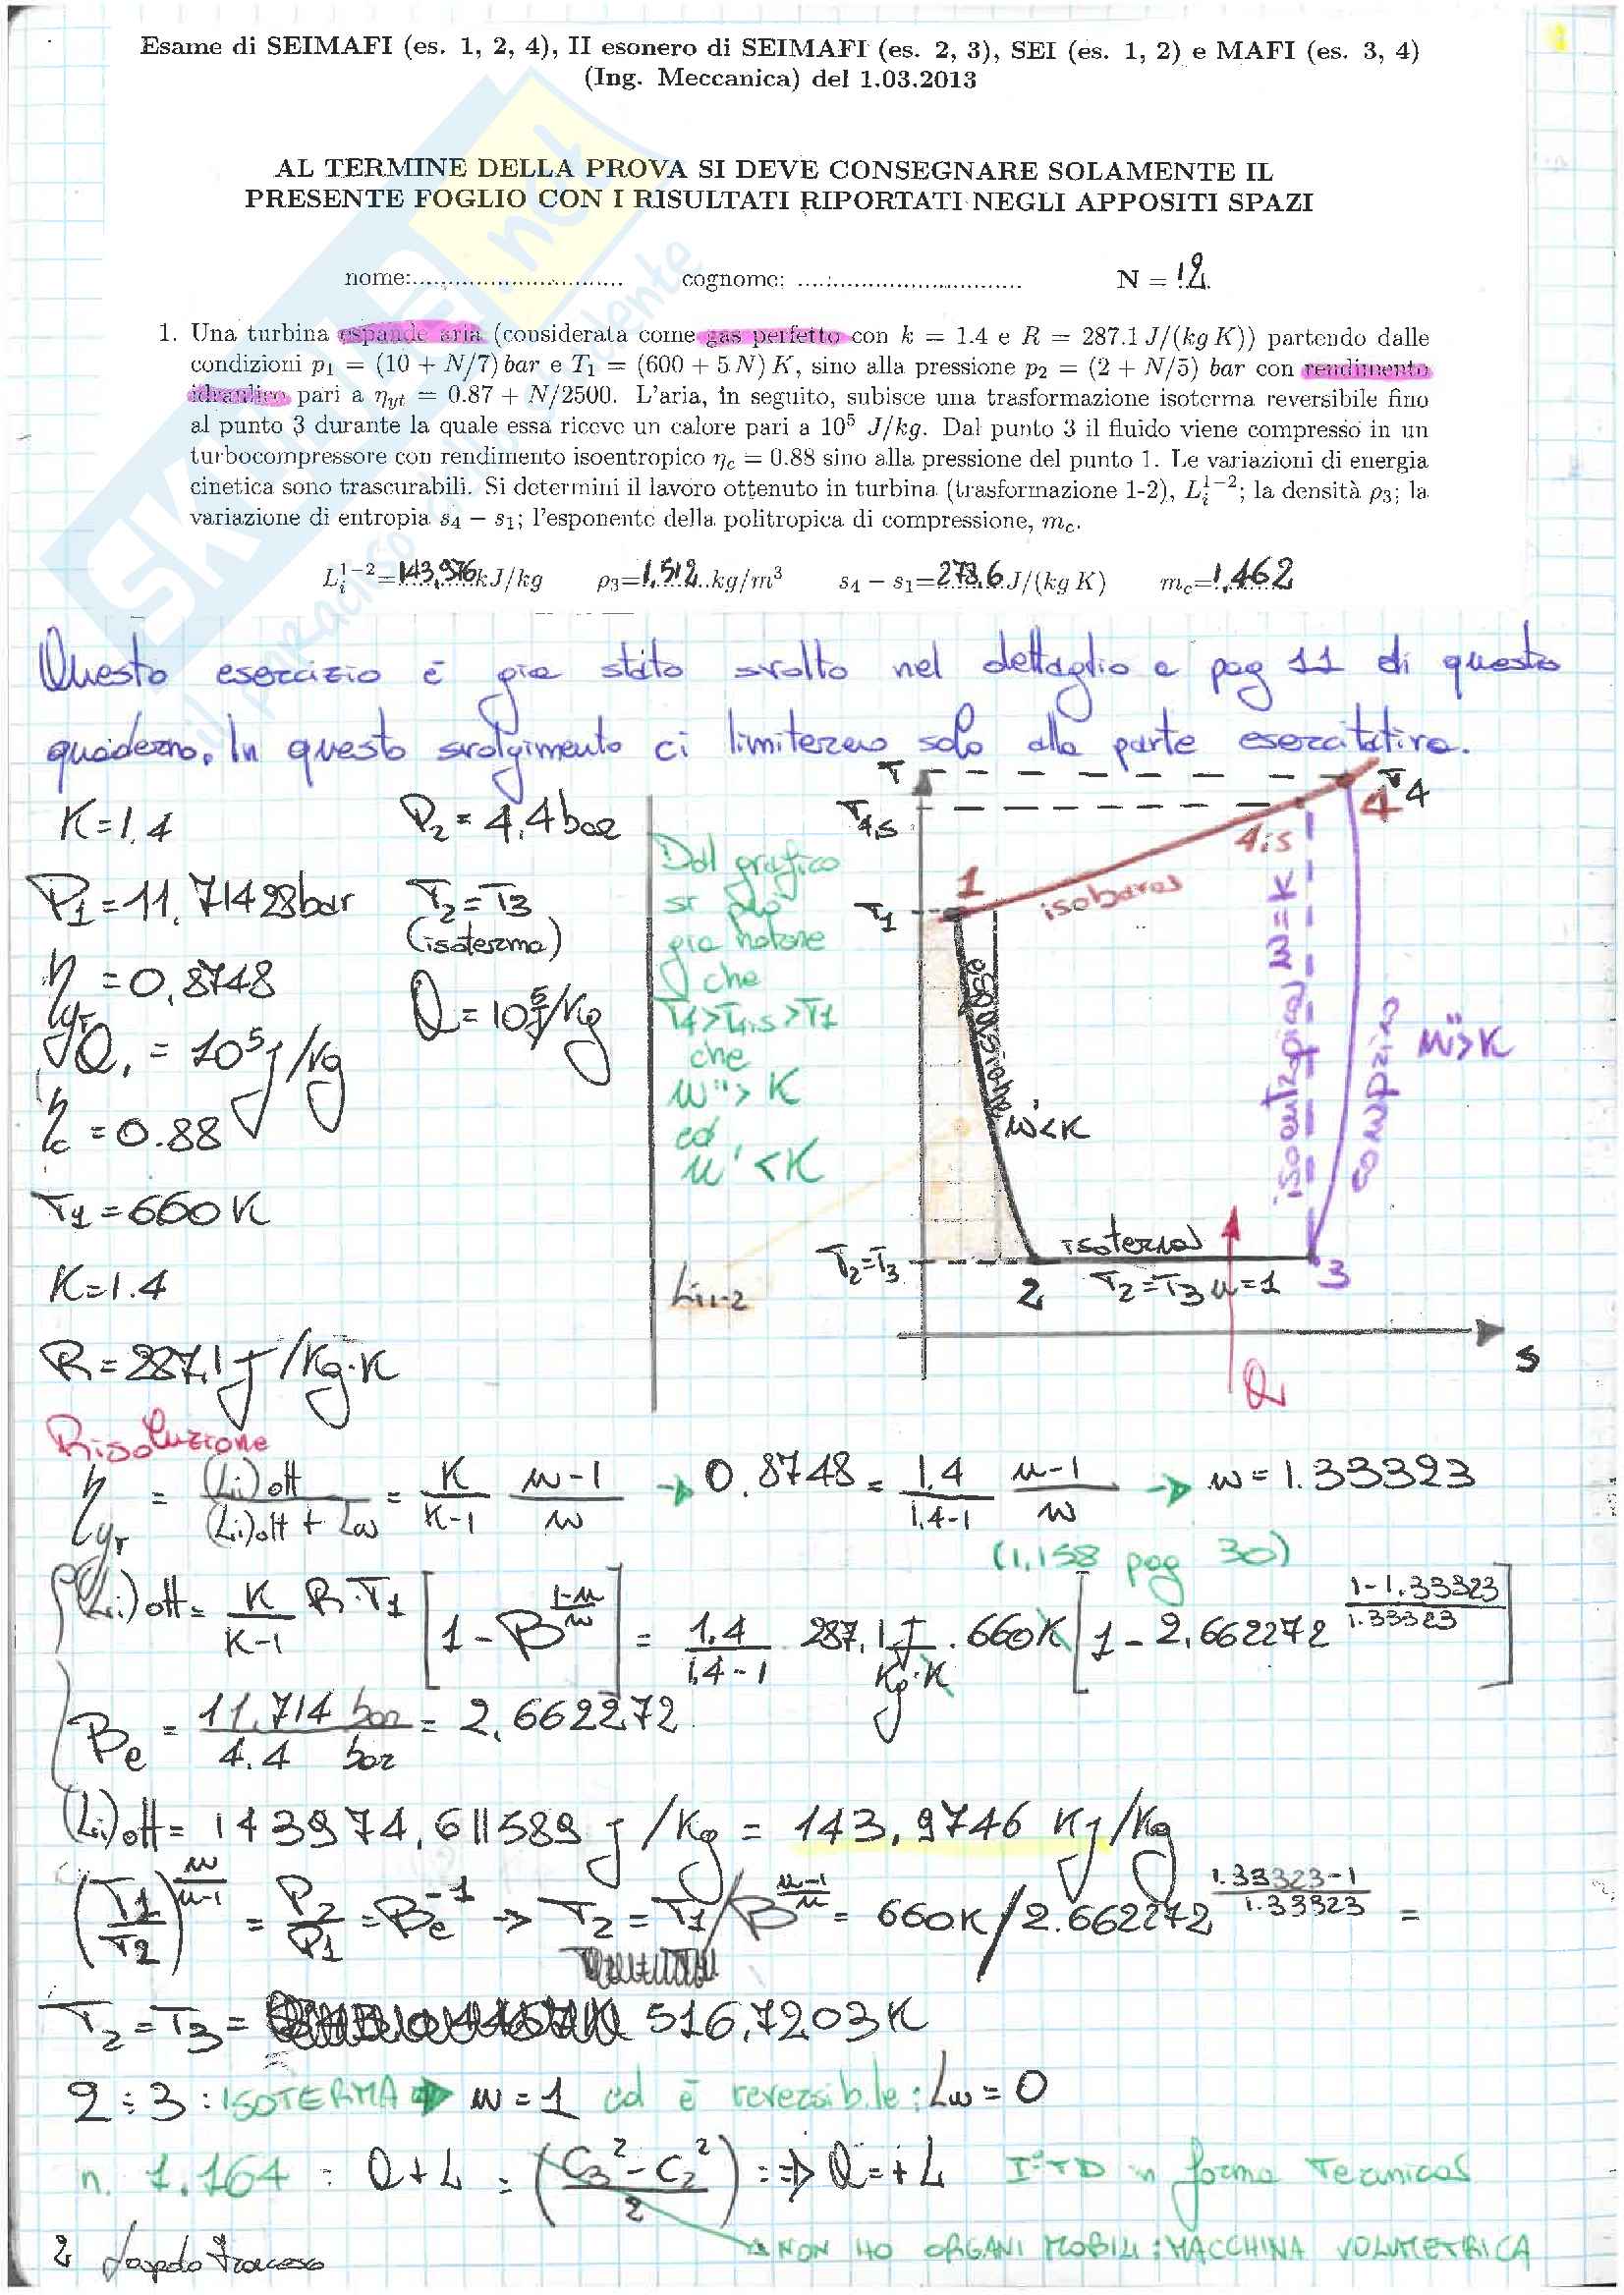 Esame di SEIMAFI (es. 1, 2, 4), II esonero di SEIMAFI (es. 2, 3), SEI (es. 1, 2) e MAFI (es. 3, 4)
(Ing. Meccanica) del 1.03.2013
AL TERMINE DELLA PROVA SI DEVE CONSEGNARE SOLAMENTE IL
PRESENTE FOGLIO CON I RISULTATI RIPORTATI NEGLI APPOSITI SPAZI
nome:.............................. cognome: ................................ N = 12
1. Una turbina espande aria (considerata come gas perfetto con k = 1.4 e R = 287.1 J/(kg K)) partendo dalle
condizioni p₁ = (10 + N/7) bar e T₁ = (600 + 5 N) K, sino alla pressione p₂ = (2 + N/5) bar con rendimento
idraulico pari a ηyt = 0.87 + N/2500. L'aria, in seguito, subisce una trasformazione isoterma reversibile fino
al punto 3 durante la quale essa riceve un calore pari a 10⁵ J/kg. Dal punto 3 il fluido viene compresso in un
turbocompressore con rendimento isoentropico ηc = 0.88 sino alla pressione del punto 1. Le variazioni di energia
cinetica sono trascurabili. Si determini il lavoro ottenuto in turbina (trasformazione 1-2), Lᵢ¹⁻²; la densità ρ₃; la
variazione di entropia s₄ − s₁; l'esponente della politropica di compressione, mc.
Lᵢ¹⁻²=143,976 kJ/kg ρ₃=1,512 kg/m³ s₄ − s₁=273,6 J/(kg K) mc=1,462
Questo esercizio è già stato svolto nel dettaglio a pag 11 di questo
quaderno. In questo svolgimento ci limiteremo solo alla parte esercitativa.
K=1.4 P₂= 4,4 bar
P₁=11,71428bar T₂=T₃
(isoterma)
η yr =0,8748 Q=10⁵J/Kg
Q, = 10⁵ J/Kg
ηc =0.88
T₁=660 K
K=1.4
R=287,1 J/Kg·K
Dal grafico
si può
già notare
che
T4>T4is>T1
che
m''> K
ed
m' <K
Li1-2
T
T4s
T4
4
4is
1
T1
isobara
espansione
m'<K
isoentropica m=K
compressione
m''>K
T₂=T₃
isoterma
2 T₂=T₃ m=1 3
s
Q
Risoluzione
η yr = (Li)ott / (Li)ott + Lw = K/K-1 m-1/m → 0.8748 = 1.4/1.4-1 m-1/m → m=1.33323
(1,158 pag 30)
(Li)ott= K/K-1 R·T₁ [1-B^(1-m/m)] = 1.4/1.4-1 287,1 J/Kg·K · 660K [1-2,662272^(1-1.33323/1.33323)]
Be = 11,714 bar / 4.4 bar = 2,662272
(Li)ott= 143974,611589 J/Kg = 143,9746 KJ/Kg
(T1/T2)^(m/m-1) = P2/P1 = Be⁻¹ → T₂=T₁/B^(m-1/m) = 660K/2.662272^(1.33323-1/1.33323) =
T₂=T₃= 516,7203K
2÷3: ISOTERMA → m=1 ed è reversibile: Lw=0
n. 1.164 : Q+L = (C₃²-C₂²/2) => Q=+L I° TD in forma Termica
NON HO ORGANI MOBILI: MACCHINA VOLUMETRICA
2